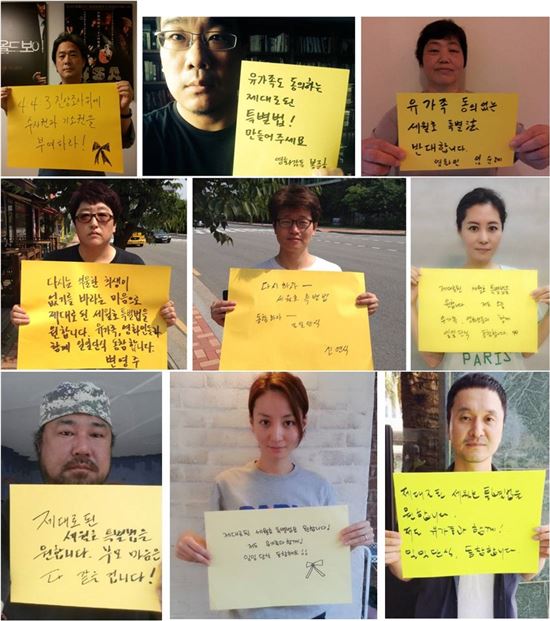 올드보이
JSA
4 4 3 진상조사위에
수사권과 기소권을
부여하라!
유가족도 동의하는
제대로된
특별법!
만들어 주세요
영화감독
유가족 동의없는
세월호 특별法
반대합니다.
영화인
다시는 억울한 희생이
없기를 바라는 마음으로
제대로된 세월호 특별법을
원합니다. 유가족, 영화인들과
함께 일일단식 동참합니다.
변영주
다시 하라
세월호 특별법
신연식
제대로된 세월호 특별법을
원합니다. 저도
유가족, 영화인들과 함께
일일 단식 동참합니다.
PARIS
제대로된
세월호 특별법을
원합니다. 부모 마음은
다 같을 겁니다!
제대로된 세월호 특별법을 원합니다!
저도 유가족과 함께!
일일 단식 동참해요!!
제대로된 세월호 특별법을
원합니다.
저도 유가족과 함께!
일일단식, 동참합니다